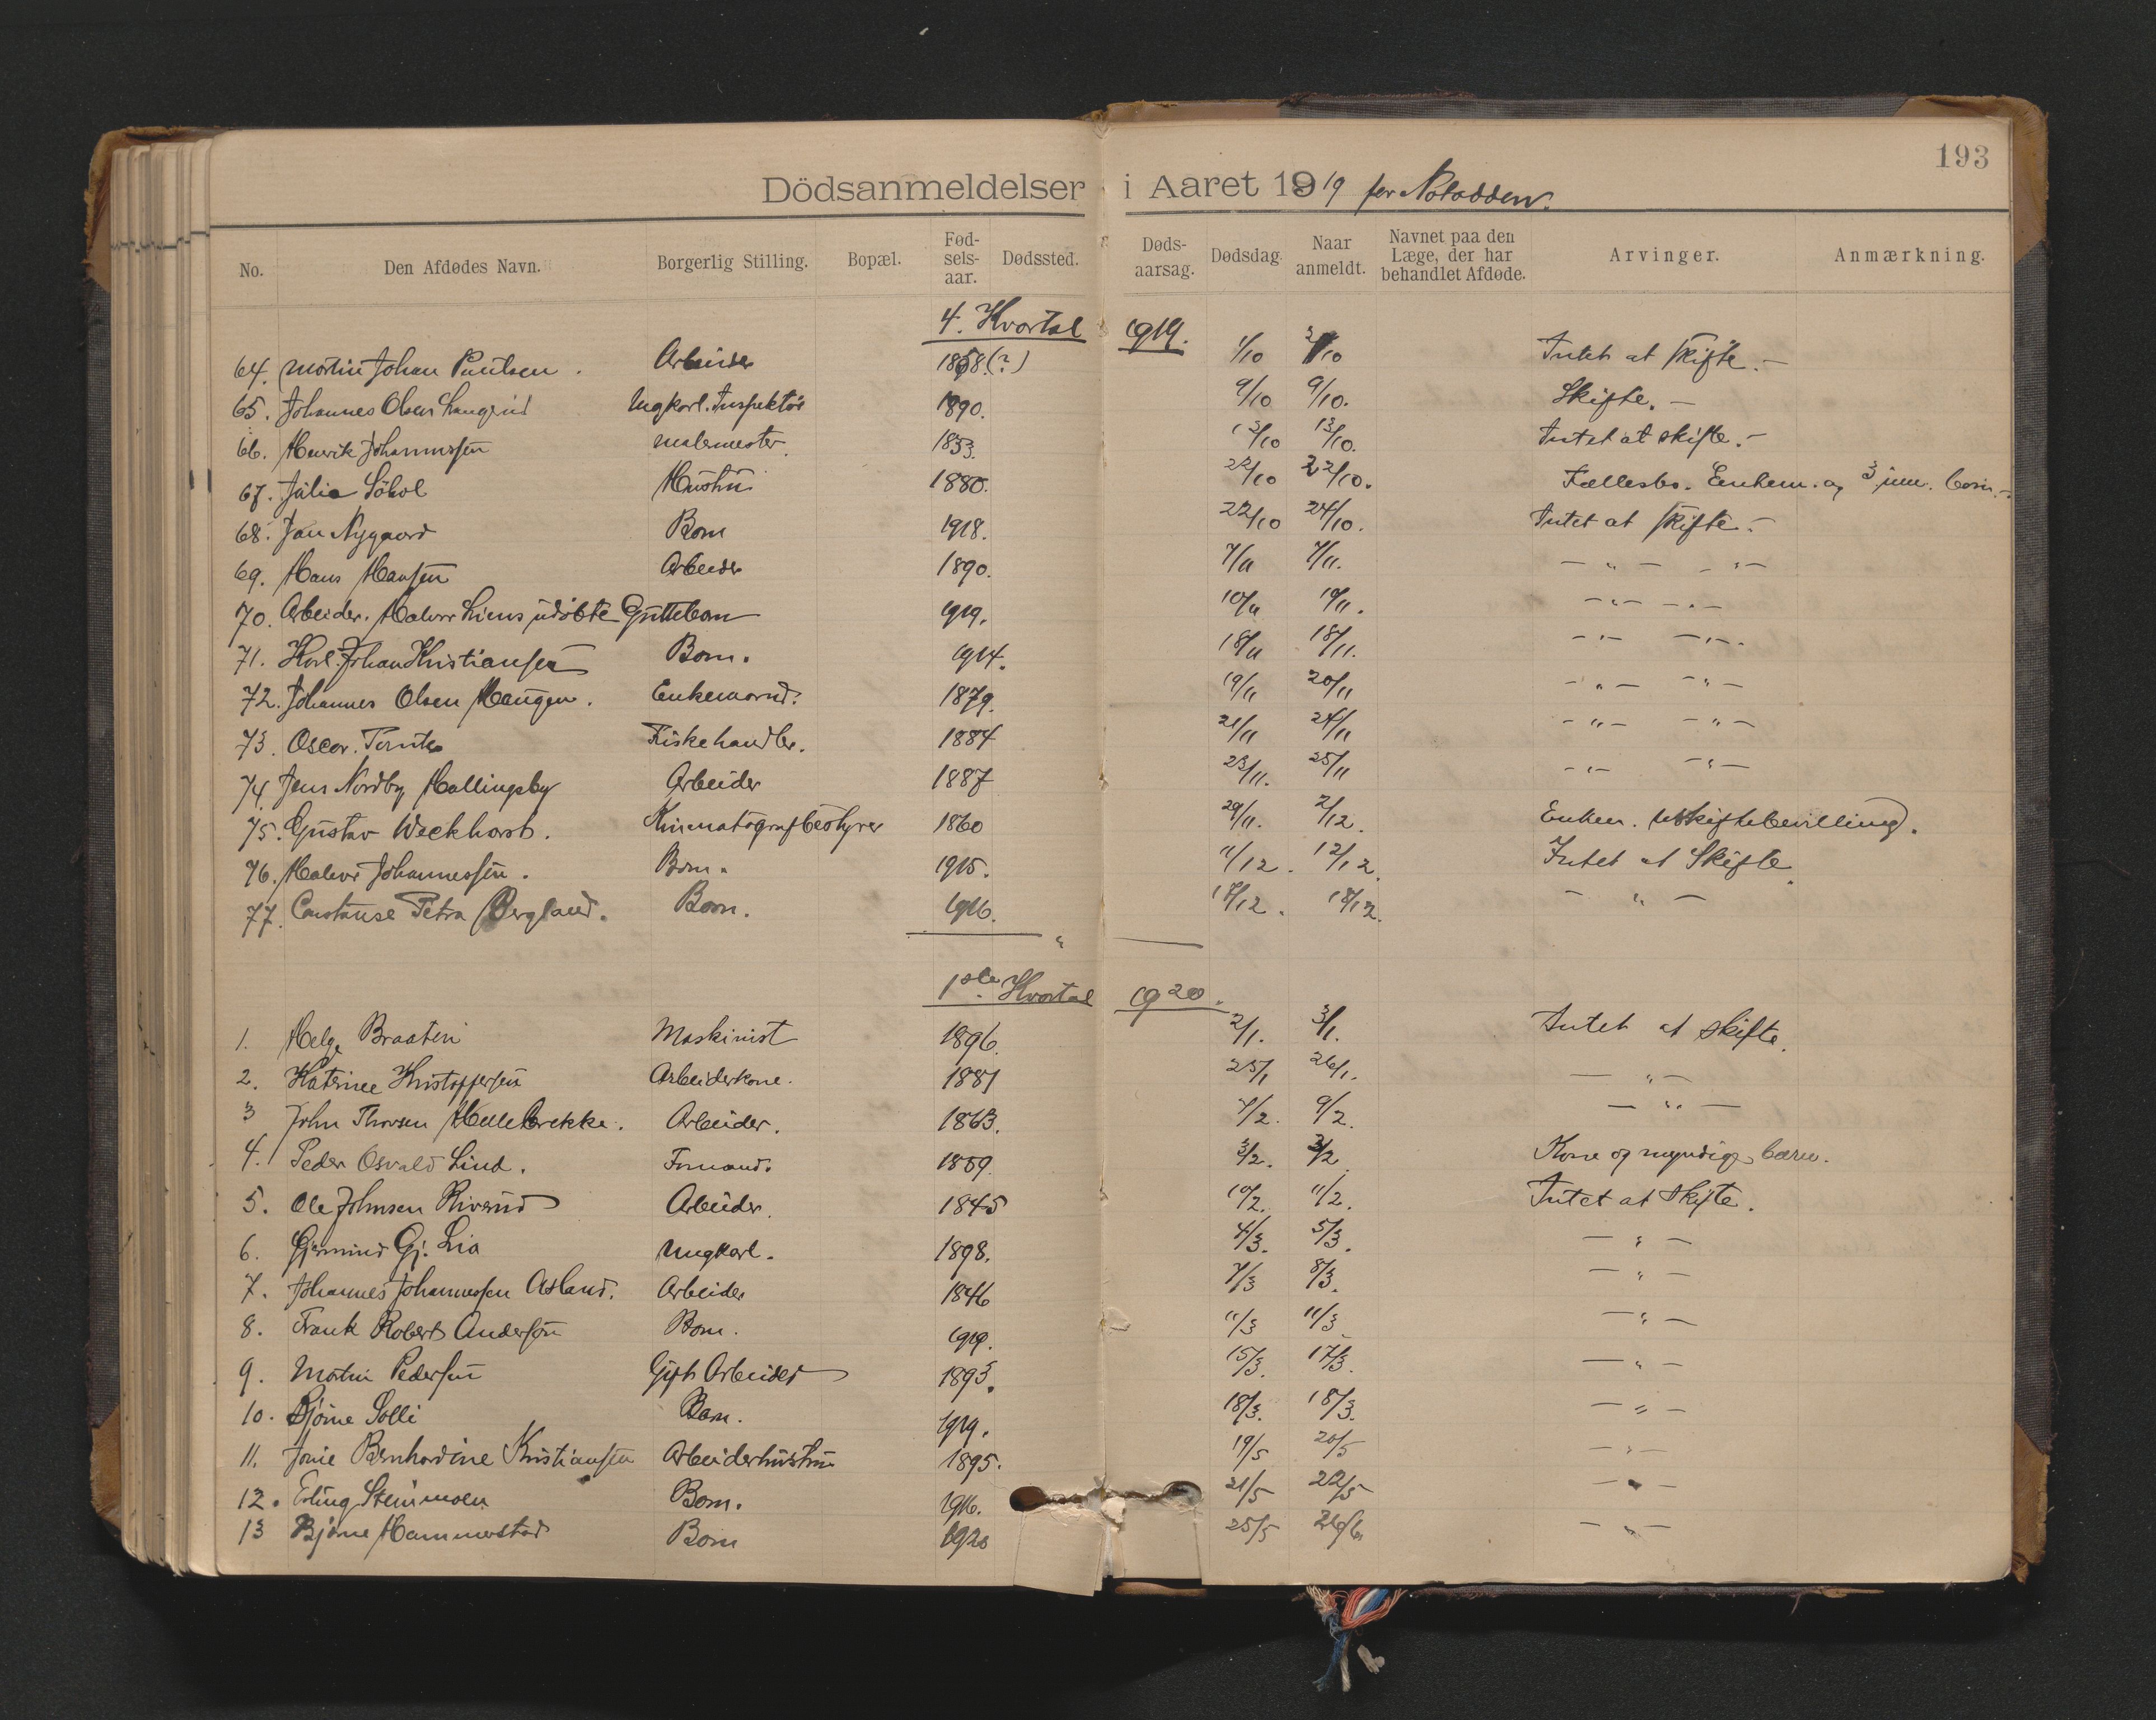 193
Dödsanmeldelser i Aaret 1919 for Notodden.
No. Den Afdødes Navn. Borgerlig Stilling. Bopæl. Fødselsaar. Dødssted. Dødsaarsag. Dødsdag. Naar anmeldt. Navnet paa den Læge, der har behandlet Afdøde. Arvinger. Anmærkning.
4. Kvartal 1919.
64. Martin Johan Paulsen. Arbeider 1858(?) 1/10 2/10 Intet at skifte. -
65. Johannes Olsen Langrud Ungkarl. Inspektør 1890. 9/10 9/10. Skifte. -
66. Henrik Johannessen malermester. 1853. 13/10 13/10. Intet at skifte. -
67. Julia Sökol Hustru 1880. 22/10 22/10. Fællesbo. Enkem. og 3 um. barn. -
68. Jan Nygaard Barn 1918. 22/10 24/10. Intet at skifte. -
69. Hans Hansen Arbeider 1890. 7/11 7/11. - " - - " -
70. Arbeider. Halvor Liens udøbte Guttebarn 1919. 10/11 10/11. - " - - " -
71. Karl Johan Kristiansen Barn. 1914. 18/11 18/11. - " - - " -
72. Johannes Olsen Haugen. Enkemand. 1879. 19/11 20/11 - " - - " -
73. Oscar Fiskehandler. 1884 21/11 24/11 - " - - " -
74. Jens Nordby Hallingsby Arbeider 1887 23/11. 25/11 - " - - " -
75. Gustav Weckhorst. Kinematografbestyrer 1860 29/11. 2/12. Enken. uskiftebevilling.
76. Halvor Johannessen. Barn. 1915. 11/12. 12/12. Intet at Skifte.
77. Constanse Petra Bergland. Barn. 1916. 17/12. 18/12. - " -
"
1ste Kvartal 1920.
1. Helge Braaten Maskinist 1896. 2/1. 3/1. Intet at skifte.
2. Katrine Kristoffersen Arbeiderkone. 1881 25/1 26/1. - " -
3 John Thorsen Hellebrekke. Arbeider. 1863. 7/2. 9/2. - " -
4. Peder Osvald Lind. Formand. 1859 3/2. 3/2. Kone og myndige barn.
5. Ole Johnsen Riverud Arbeider. 1845 10/2. 11/2. Intet at skifte.
6. Gjermund Gj. Lia Ungkarl. 1898. 4/3. 5/3. - " -
7. Johannes Johannessen Aasland. Arbeider 1846 7/3 8/3. - " -
8. Frank Robert Andersen Barn. 1919. 11/3 11/3 - " -
9. Martin Pedersen Gift Arbeider 1893. 15/3. 17/3. - " -
10. Bjarne Solli Barn. 1919. 18/3. 18/3. - " -
11. Bernhardine Kristiansen Arbeiderhustru 1895. 19/5 20/5 - " -
12. Erling Steinmoen Barn. 1916. 21/5 22/5 - " -
13 Bjarne Hammerstad Barn 1920 25/5 26/6. - " -